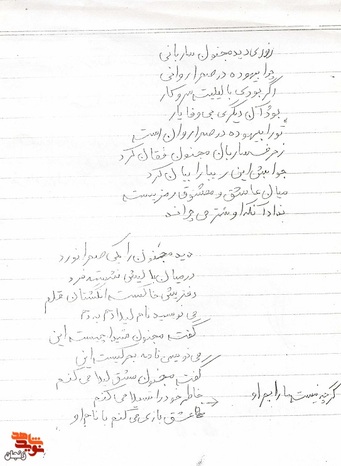 روزی دید مجنون ساربانی
چرا بیهوده در صحرا روانی
اگر بودی با لیلیت سر و کار
بود آن دیگری بی وفا یار
تو را بیهوده در صحرا روان است
زحرف ساربان مجنون فغان کرد
جوابش این زیبا را بیان کرد
میان عاشق و معشوق رمزیست
نداند آنکه او شتر می چراند
دید مجنون را یکی صحرا نورد
در میان بادیه بنشسته فرد
دفترش خاکست انگشتان قلم
می نویسد نام لیلا دم به دم
گفت مجنون شیدا چیست این
می نویسی نامه بهر کیست این
گفت مجنون مشق لیلا می کنم
خاطر خود را تسلا می کنم
گرچه نیست ما را بهر او
عشق بازی می کنم با نام او
نوید شاهد
زنجان